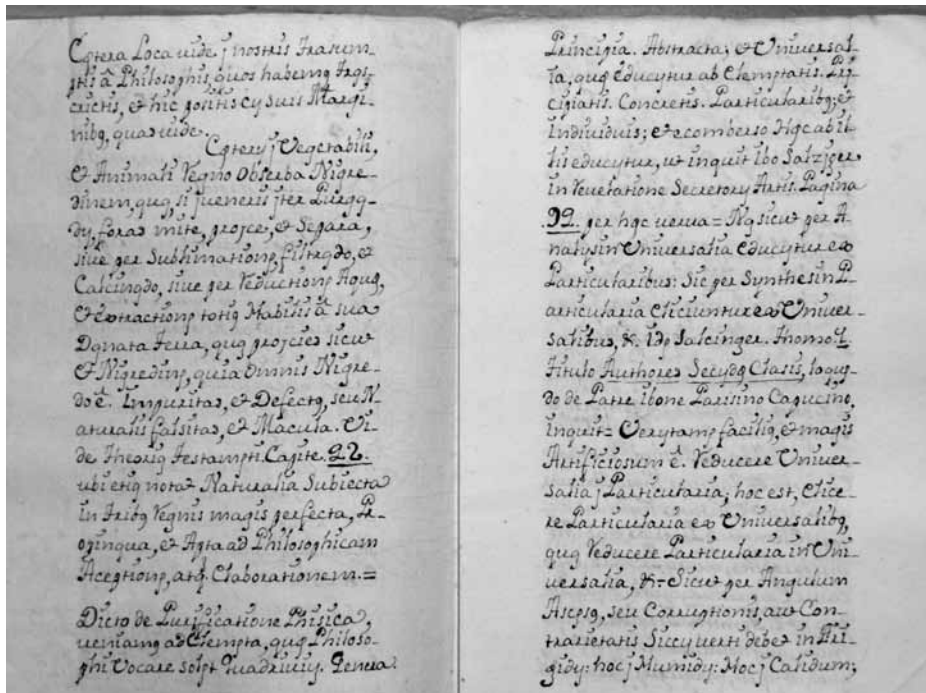 Cętera Loca uide j nostris Trasum-
ptis â Philosophis, quos habemq Trãs-
crictis, et hic positis cy suis Margi-
nibq, quas uide.
Cętery j Vegetabili,
et Animali Regno obserba Nigre-
dinem, quę si jueneris jter Purgą-
dy, foras mite, projce, et Separa,
siue per Sublimationę, filtrądo, et
Calcinądo, siue per Reductionę Aquę,
et extractionę totiq Mabilis â sua
Dąnata terra, quę projcies sicut
et Nigredinę, quia omnis Nigre-
do ê. Impuritas, et Defectq, seu N-
aturalis falsitas, et Macula. Vi-
de Theorię Testampti. Capite. 22.
ubi etią notat Naturalia Subiecta
in tribq Regnis magis perfecta, Pr-
opinqua, et Apta ad Philosophicam
Aceptionę, atq. Elaborationem.=
Dicto de Purificatione Phisica,
ueniamq ad Elempta, quę Philoso-
phi Vocare solęt Quadriuiy. Genera
Principia. Abstracta; et Uniuersal-
ia, quę educytur ab Elemptatis. Pri-
cipiatis. Concretis. Particularibq; et
indiuiduis; et econberso Hęc ab il-
lis educytur, ut inquit Ibo Salzjger
in Reuelatione Secretory Artis. Pagina
.92. per hęc uerua= Ną sicut per A-
nalysin Uniuersalia educytur ex
Particularibus: Sic per Synthesin P-
articularia eliciuntur ex Uniuer-
salibus, &. Idę Salcinger. thomo. 1.
titulo Authores Secydę Clasis, loquę-
do de Patre ibone Parisino Capucino,
inquit= Verytamę faciliq, et magis
Artificiosum ê. Reducere Uniuer-
salia j Particularia; hoc est, Elice-
re Particularia ex Uniuersalibq,
quą Reducere Particularia in Uni-
uersalia, &.= Sicut per Angulum
Ascęsq, seu Corruptionis, aut Con-
trarietatis Siccy uerti debet in Fri-
gidy: hoc j Humidy: Hoc j Calidum;